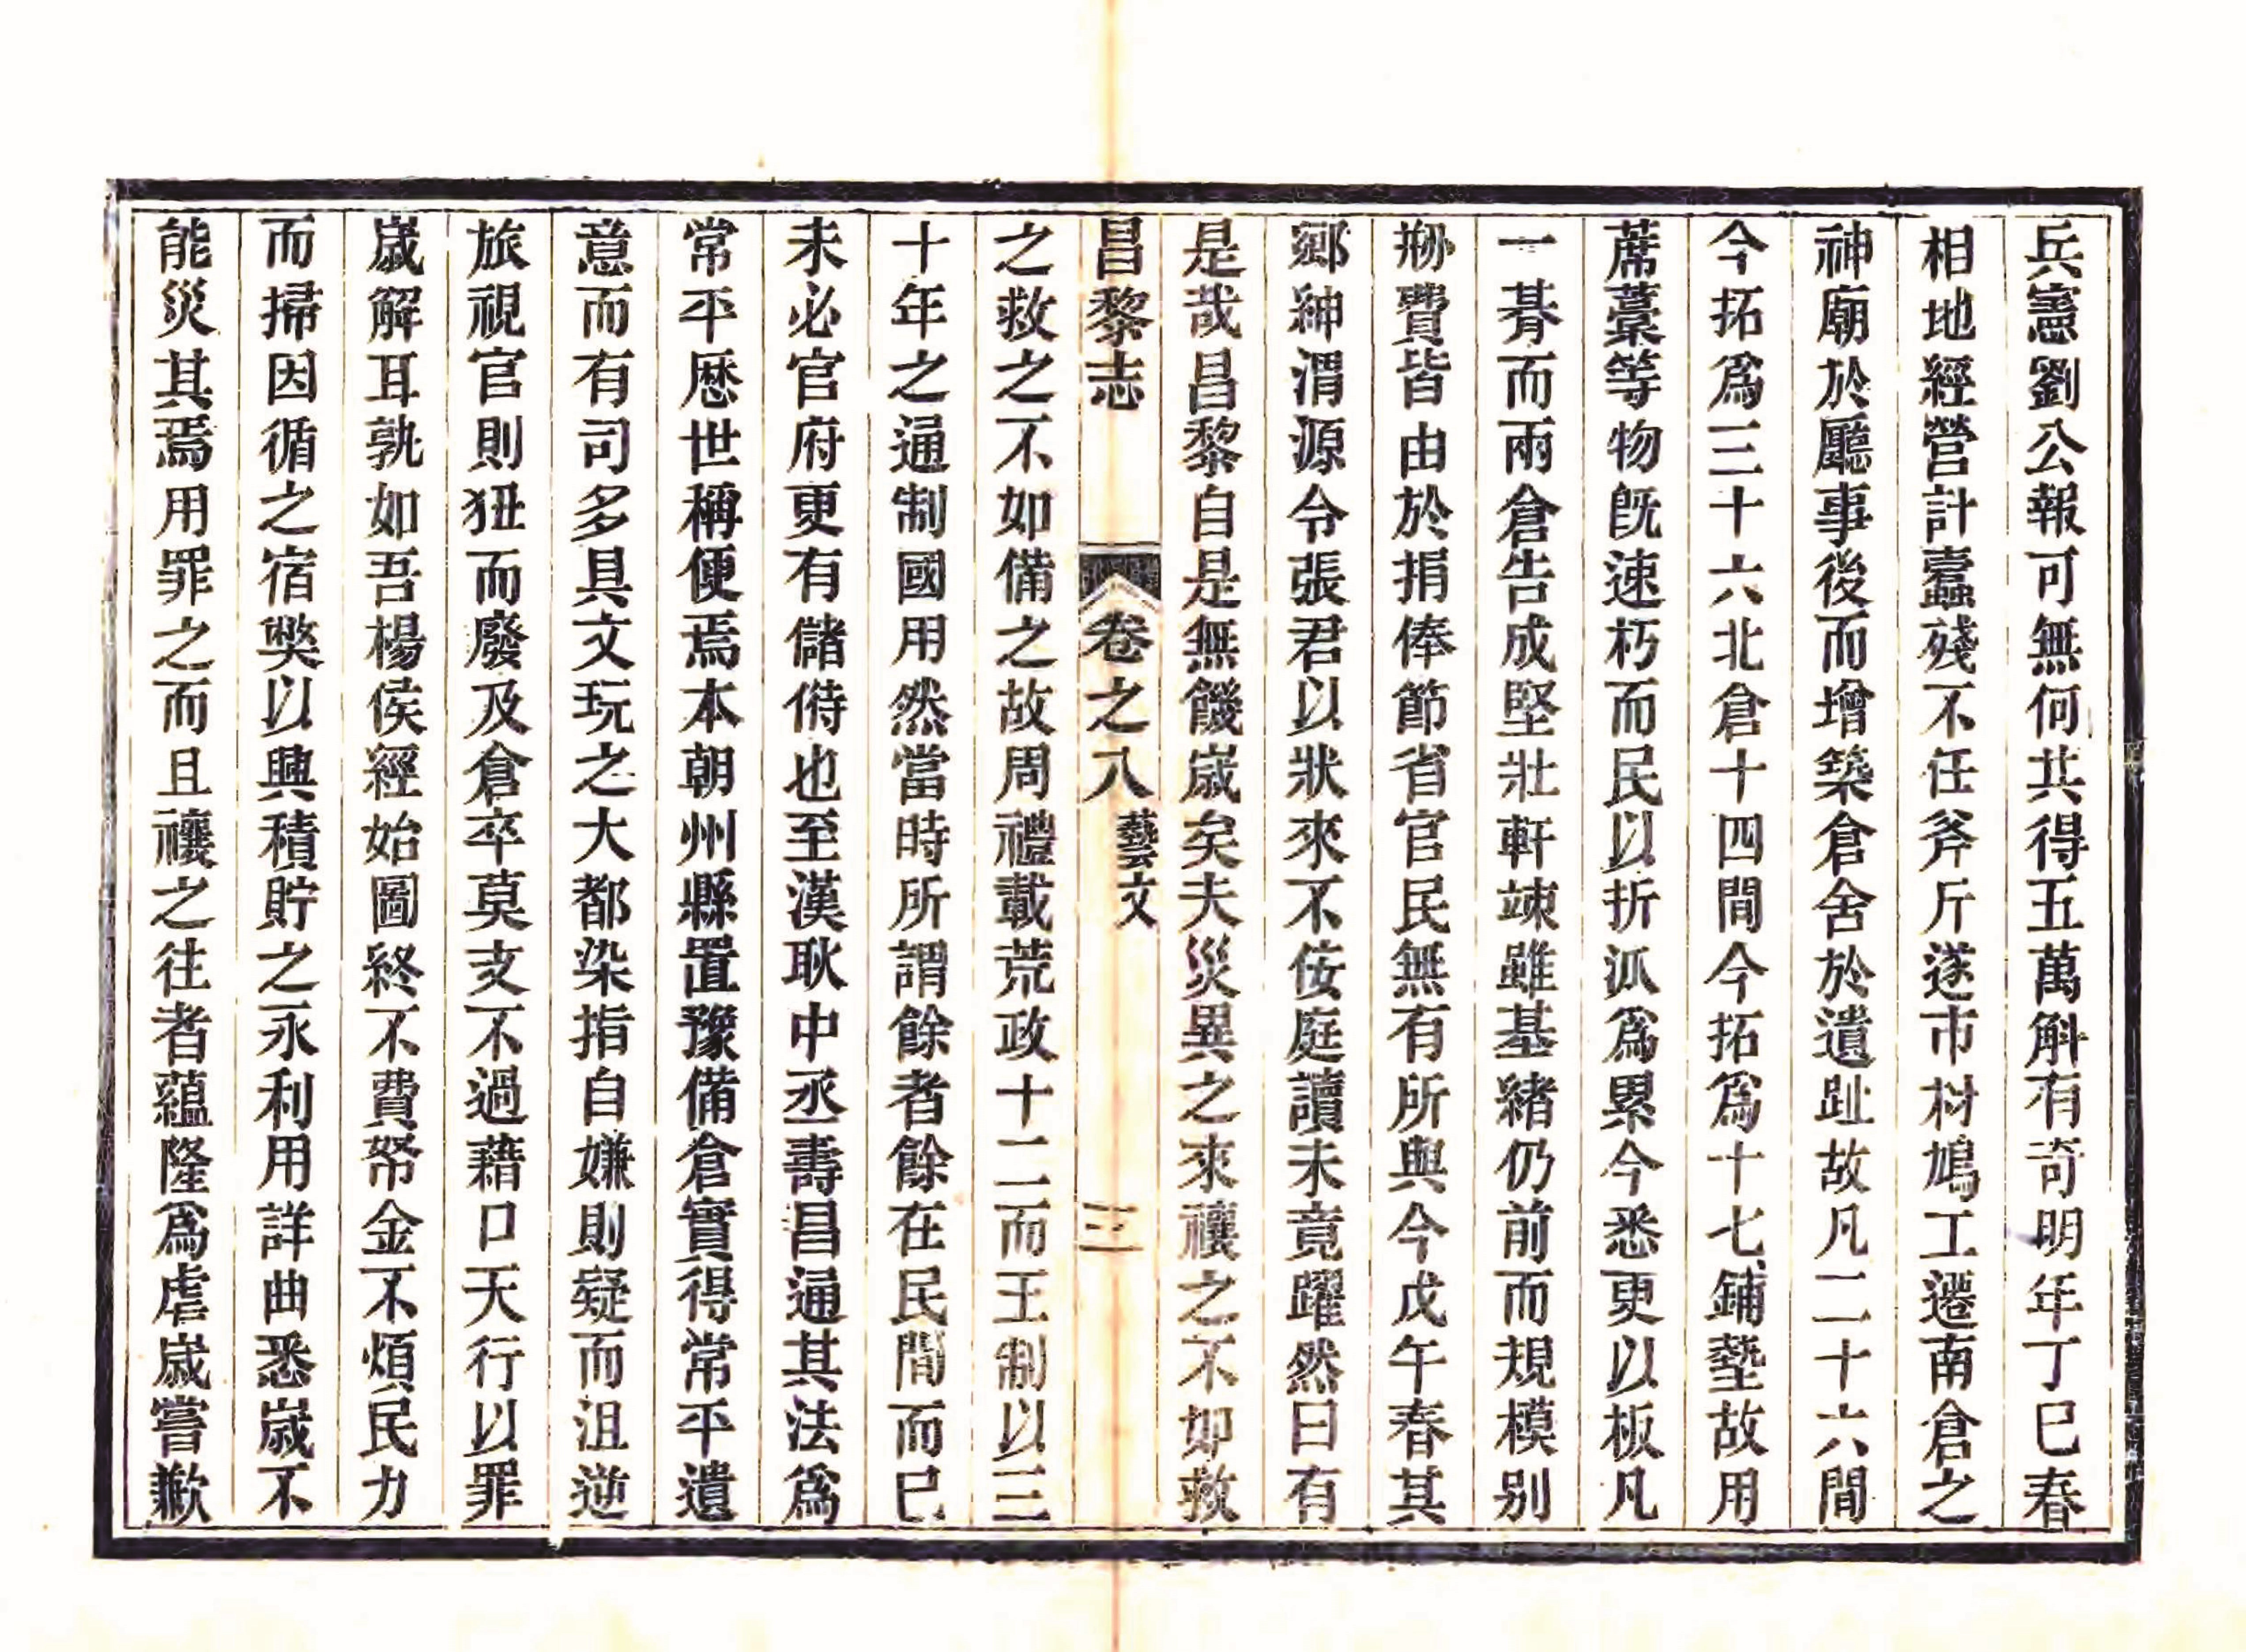 兵憲劉公報可無何共得五萬斛有奇明年丁巳春
相地經營計蠹殘不任斧斤遂市材鳩工遷南倉之
神廟於廳事後而增築倉舍於遺趾故凡二十六間
今拓爲三十六北倉十四間今拓爲十七鋪墊故用
蓆藁等物旣速朽而民以折泒爲累今悉更以板凡
一朞而兩倉告成堅壯軒竦雖基緒仍前而規模别
剏費皆由於捐俸節省官民無有所與今戊午春其
鄉紳渭源令張君以狀來不佞庭讀未竟躍然曰有
是哉昌黎自是無饑歲矣夫災異之來禳之不如救
昌黎志 卷之八 藝文 三
之救之不如備之故周禮載荒政十二而王制以三
十年之通制國用然當時所謂餘者餘在民間而已
未必官府更有儲偫也至漢耿中丞壽昌通其法爲
常平厯世稱便焉本朝州縣置豫備倉實得常平遺
意而有司多具文玩之大都染指自嫌則疑而沮逆
旅視官則狃而廢及倉卒莫支不過藉口天行以罪
歲解耳孰如吾楊侯經始圖終不費帑金不煩民力
而掃因循之宿獘以興積貯之永利用詳曲悉歲不
能災其焉用罪之而且禳之往者蘊隆爲虐歲嘗歉